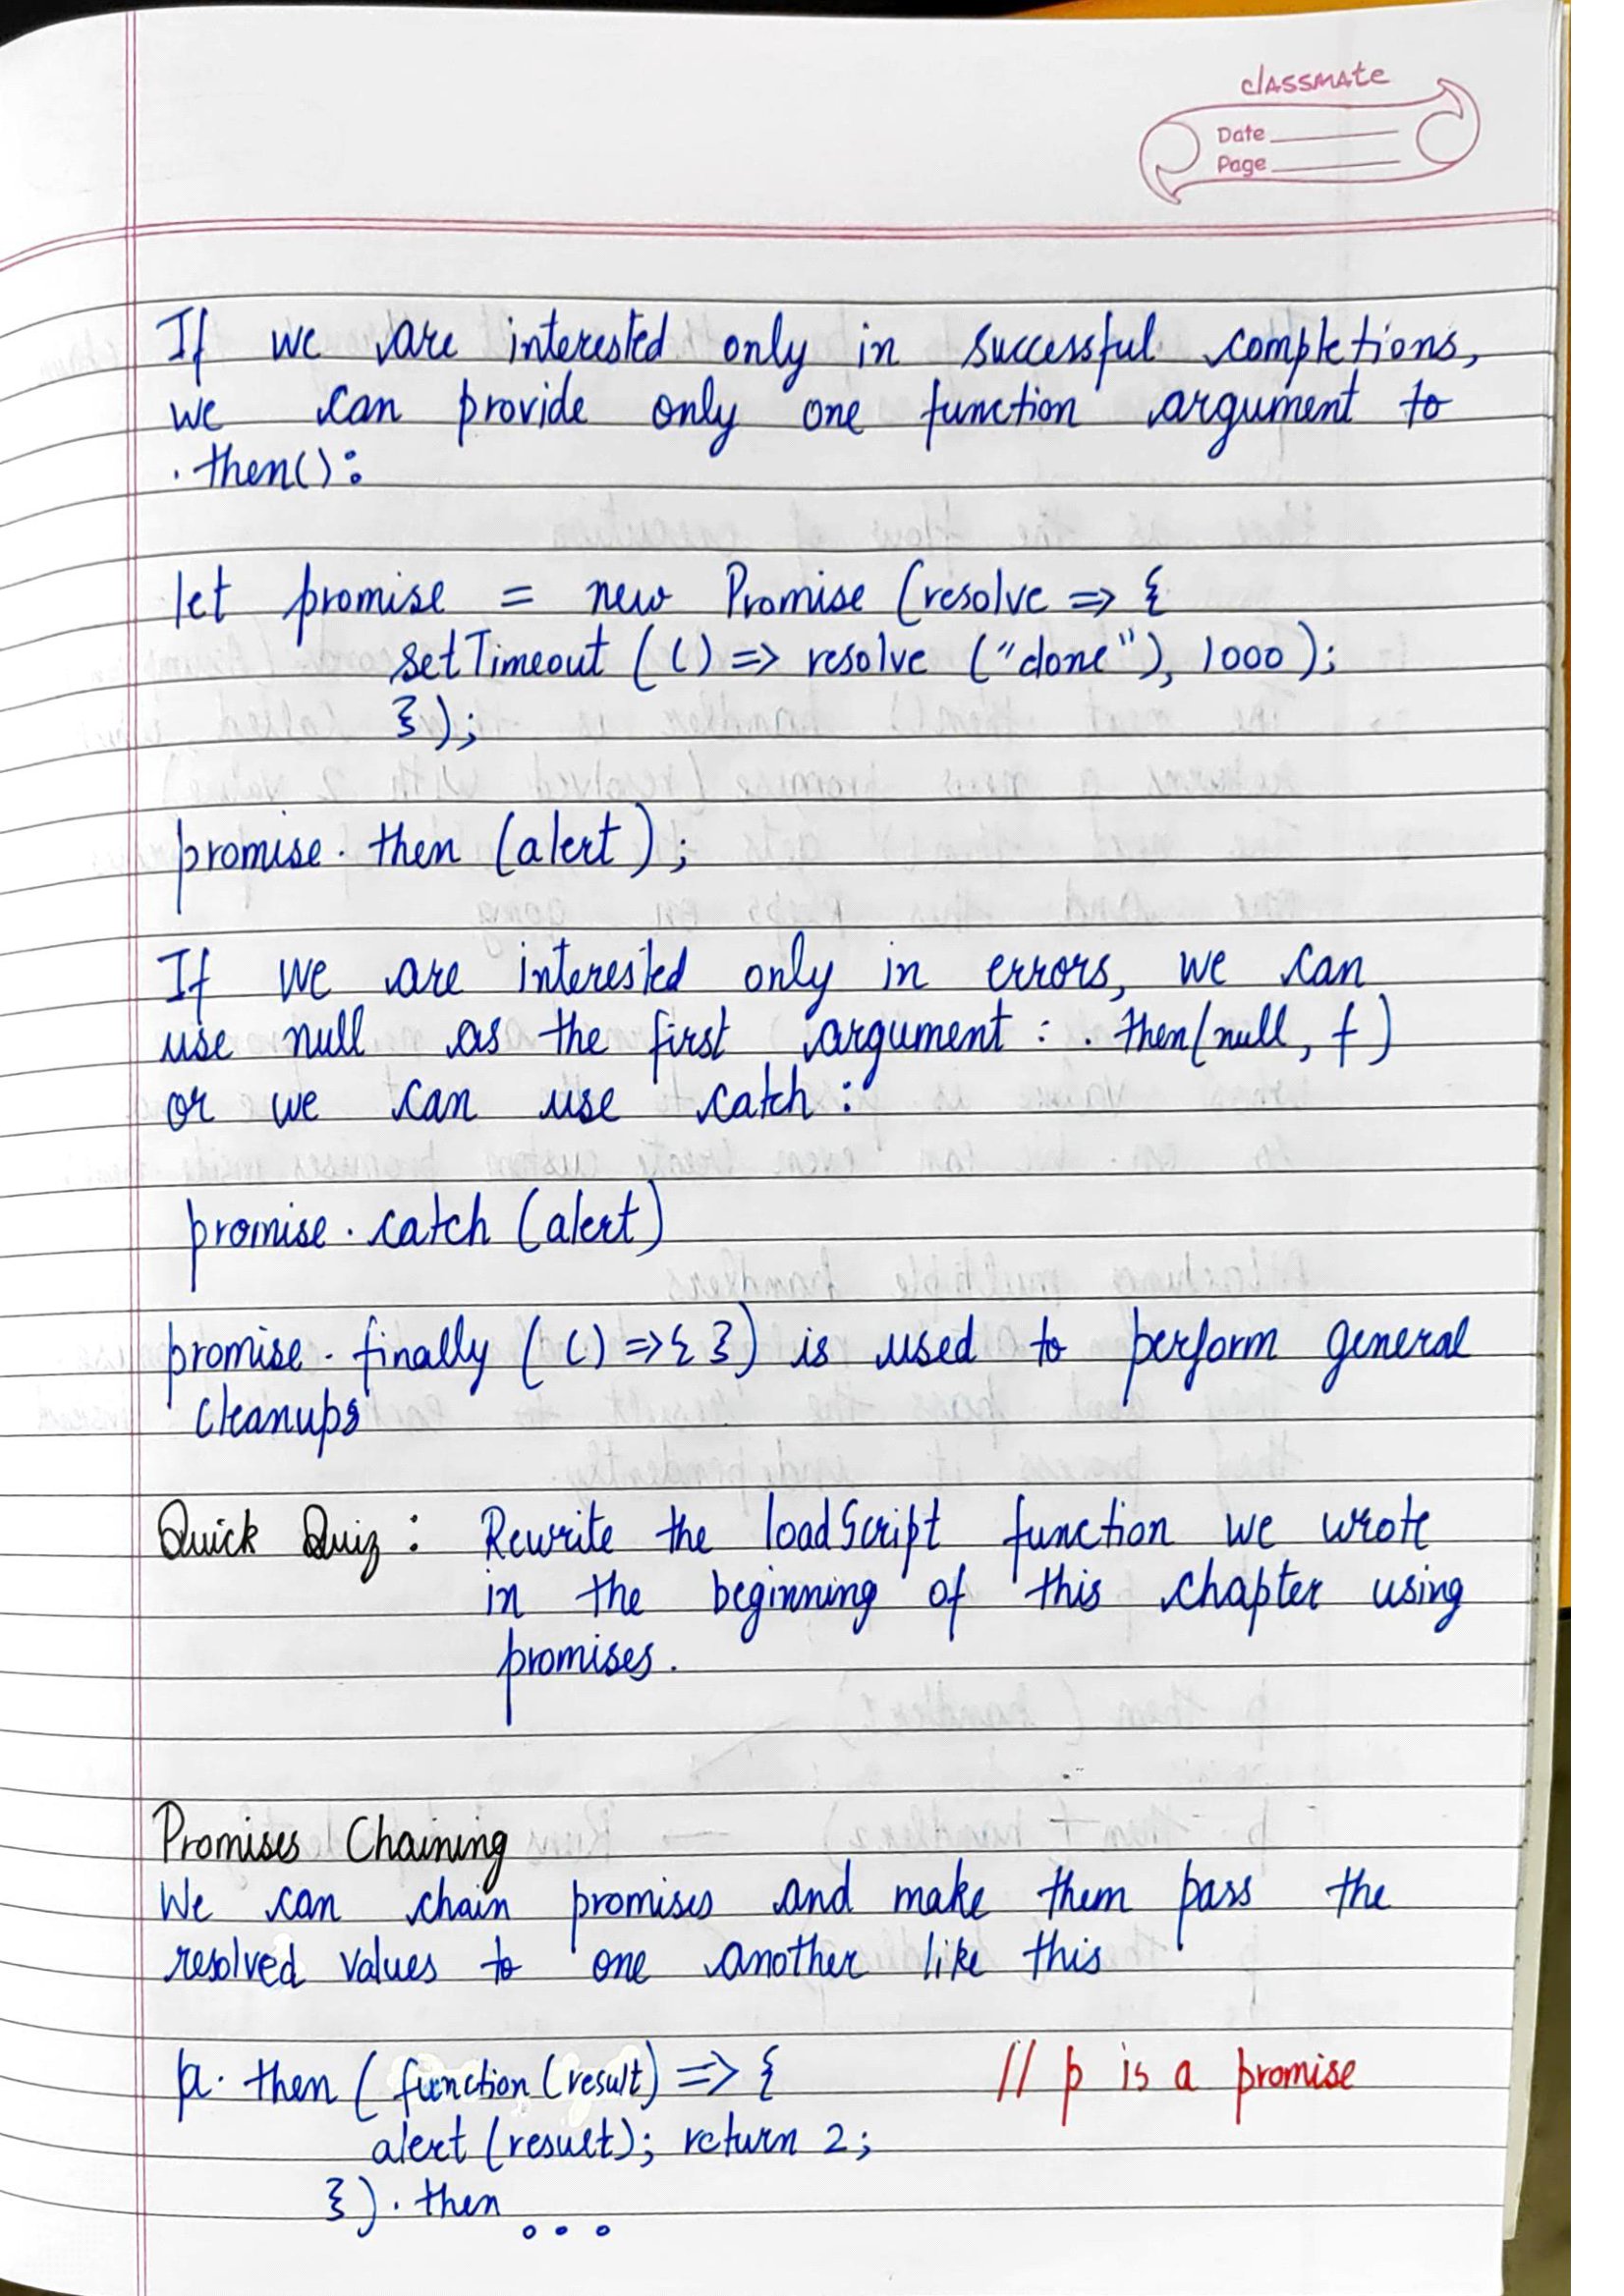 classmate
Date
Page
If we are interested only in successful completions,
we can provide only one function argument to
.then():
let promise = new Promise (resolve => {
setTimeout (() => resolve ("done"), 1000);
});
promise.then (alert);
If we are interested only in errors, we can
use null as the first argument : .then(null, f)
or we can use catch:
promise.catch (alert)
promise.finally (() => { }) is used to perform general
cleanups
Quick Quiz : Rewrite the loadScript function we wrote
in the beginning of this chapter using
promises.
Promises Chaining
We can chain promises and make them pass the
resolved values to one another like this
p.then (function (result) => { // p is a promise
alert (result); return 2;
}).then ...